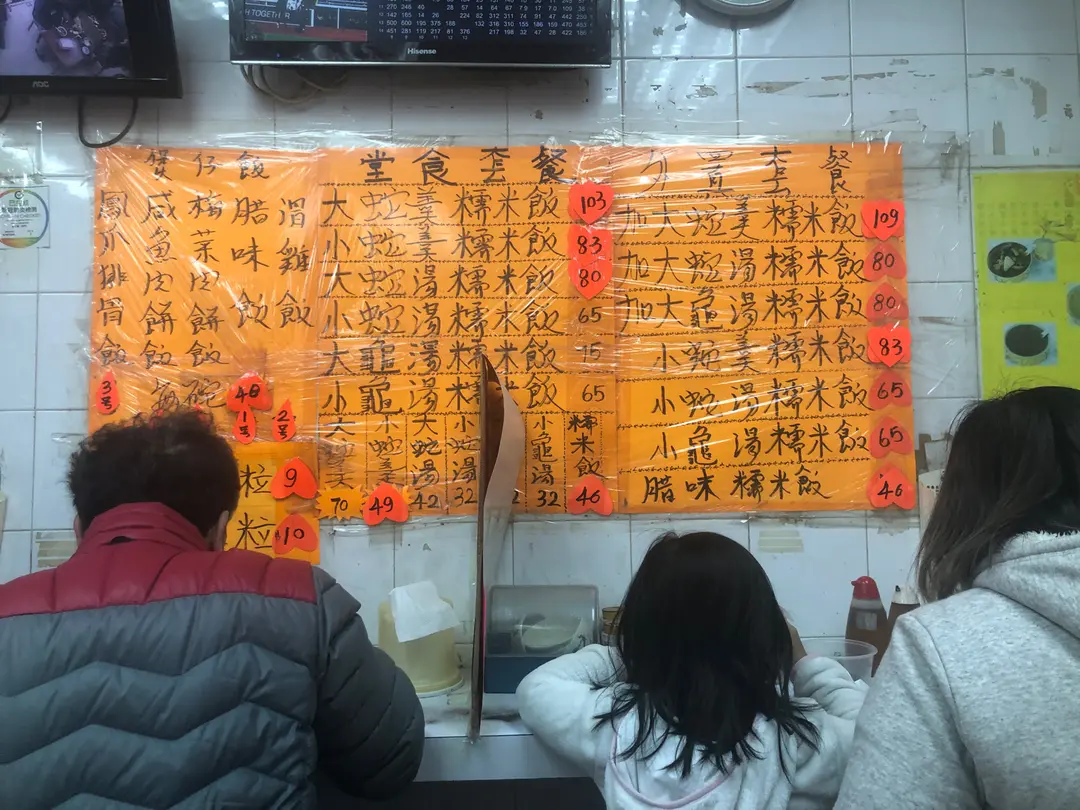 AOC
Hisense
煲仔飯
鳳爪排骨飯
咸魚肉餅飯
梅菜肉餅飯
腊味飯
滑雞飯
每碗 40
3号 1号 2号
粒 9
粒 10
堂食套餐
大蛇羹糯米飯 103
小蛇羹糯米飯 83
大蛇湯糯米飯 80
小蛇湯糯米飯 65
大龜湯糯米飯 75
小龜湯糯米飯 65
大蛇羹 70
小蛇羹 49
大蛇湯 42
小蛇湯 32
小龜湯 32
糯米飯 46
外賣套餐
加大蛇羹糯米飯 109
加大蛇湯糯米飯 80
加大龜湯糯米飯 80
小蛇羹糯米飯 83
小蛇湯糯米飯 65
小龜湯糯米飯 65
腊味糯米飯 46